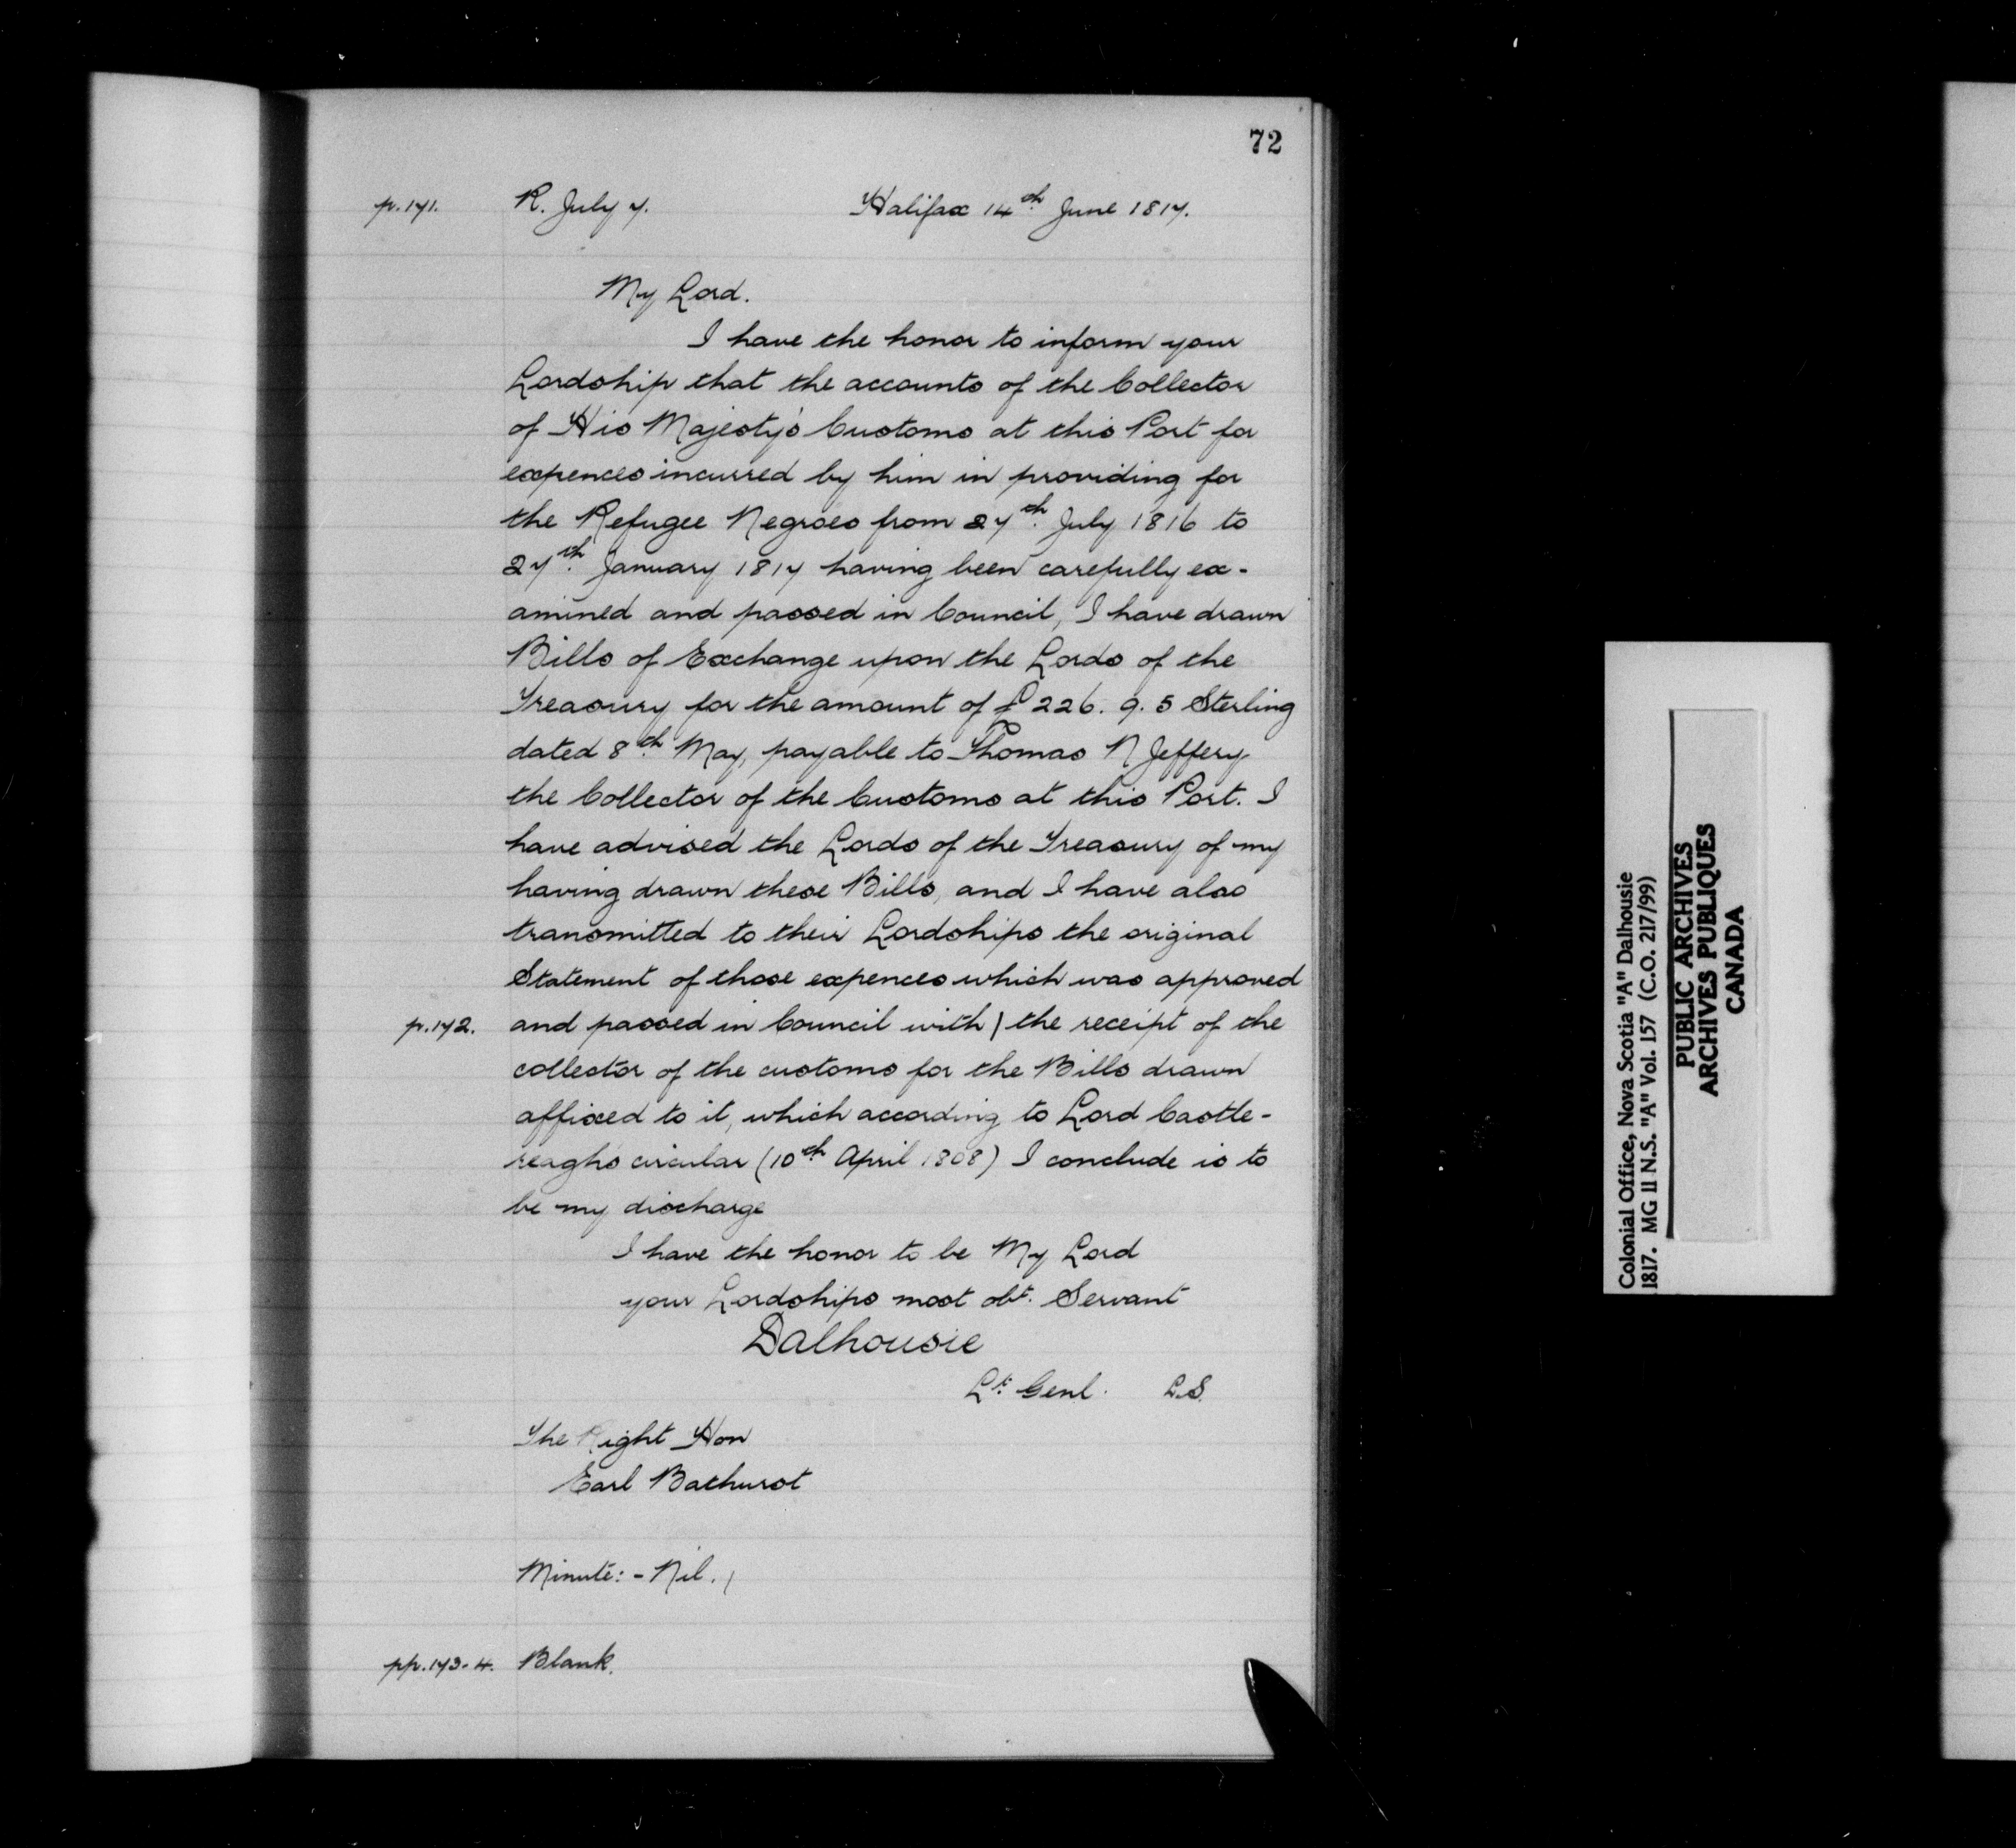 72
p.171. R. July 7. Halifax 14th June 1817.
My Lord.
I have the honor to inform your
Lordship that the accounts of the Collector
of His Majesty's Customs at this Port for
expences incurred by him in providing for
the Refugee Negroes from 27th July 1816 to
27th January 1817 having been carefully ex-
amined and passed in Council, I have drawn
Bills of Exchange upon the Lords of the
Treasury for the amount of £226. 9. 5 Sterling
dated 8th May, payable to Thomas N Jeffery
the Collector of the Customs at this Port. I
have advised the Lords of the Treasury of my
having drawn these Bills, and I have also
transmitted to their Lordships the original
Statement of those expences which was approved
p.172. and passed in Council with / the receipt of the
collector of the customs for the Bills drawn
affixed to it, which according to Lord Castle-
reagh's circular (10th April 1808) I conclude is to
be my discharge
I have the honor to be My Lord
your Lordships most obt. Servant
Dalhousie
Lt. Genl. L.S.
The Right Hon
Earl Bathurst
Minute: - Nil. /
pp.173-4. Blank.
Colonial Office, Nova Scotia "A" Dalhousie
1817. MG 11 N.S. "A" Vol. 157 (C.O. 217/99)
PUBLIC ARCHIVES
ARCHIVES PUBLIQUES
CANADA